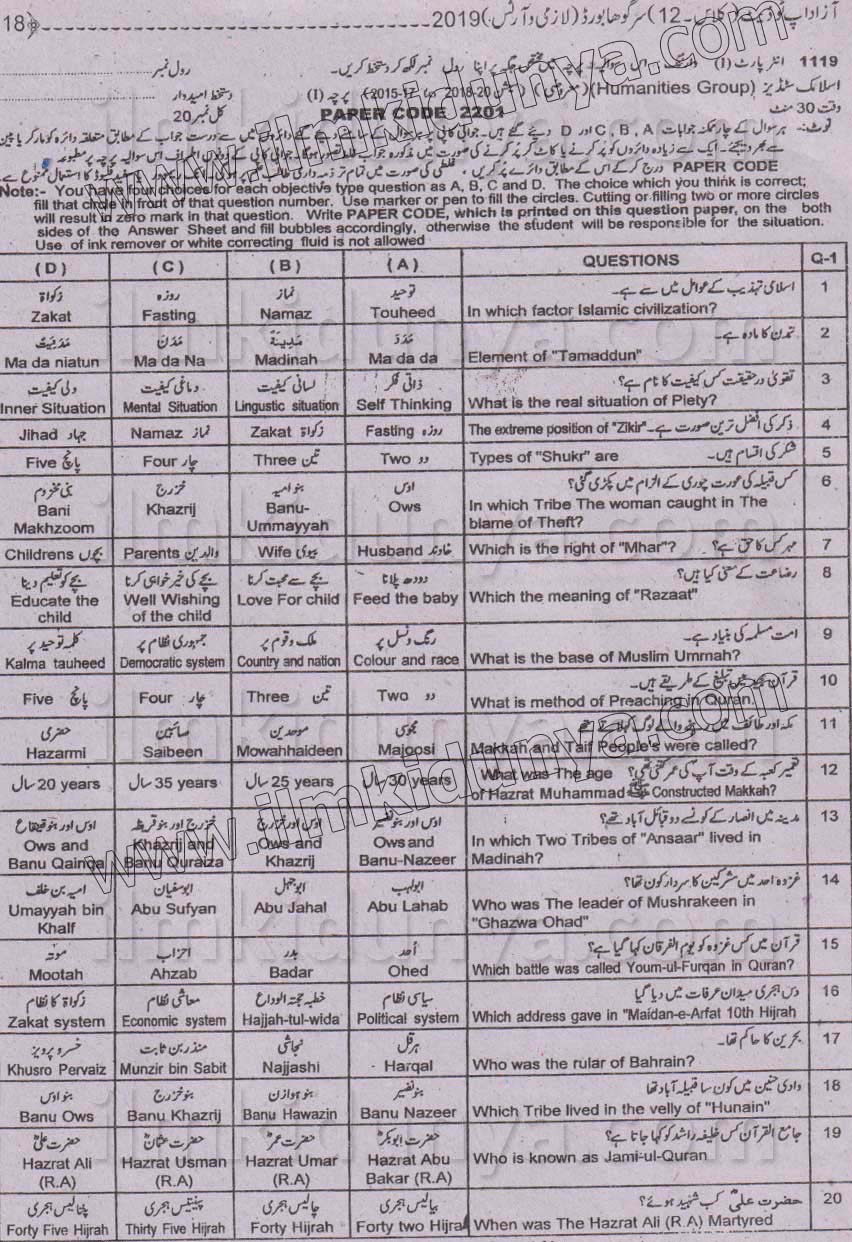 آزاد اپ ٹو ڈیٹ (کلاس-12) سرگودھا بورڈ (لازمی و آرٹس) 2019 18
1119 انٹر پارٹ (I) رول نمبر اپنا رول نمبر لکھ کر دستخط کریں۔
اسلامک سٹڈیز (Humanities Group) پرچہ (I) دستخط امیدوار
وقت 30 منٹ PAPER CODE 2201 کل نمبر 20
Note:- You have four choices for each objective type question as A, B, C and D. The choice which you think is correct;
fill that circle in front of that question number. Use marker or pen to fill the circles. Cutting or filling two or more circles
will result in zero mark in that question. Write PAPER CODE, which is printed on this question paper, on the both
sides of the Answer Sheet and fill bubbles accordingly, otherwise the student will be responsible for the situation.
Use of ink remover or white correcting fluid is not allowed
( D ) ( C ) ( B ) ( A ) QUESTIONS Q-1
زکواۃ روزہ نماز توحید اسلامی تہذیب کے عوامل میں سے ہے۔ 1
Zakat Fasting Namaz Touheed In which factor Islamic civilization?
مَدَنِیَت مَدَنَ مَدِینَة مَدَدَ تمدن کا مادہ ہے۔ 2
Ma da niatun Ma da Na Madinah Ma da da Element of "Tamaddun"
دلی کیفیت دماغی کیفیت لسانی کیفیت ذاتی فکر تقویٰ درحقیقت کس کیفیت کا نام ہے؟ 3
Inner Situation Mental Situation Lingustic situation Self Thinking What is the real situation of Piety?
Jihad جہاد Namaz نماز Zakat زکواۃ Fasting روزہ The extreme position of "Zikir" ذکر کی افضل ترین صورت ہے۔ 4
Five پانچ Four چار Three تین Two دو Types of "Shukr" are شکر کی اقسام ہیں۔ 5
بنی مخزوم خزرج بنو امیہ اوس کس قبیلہ کی عورت چوری کے الزام میں پکڑی گئی؟ 6
Bani Makhzoom Khazrij Banu-Ummayyah Ows In which Tribe The woman caught in The
blame of Theft?
Childrens بچوں Parents والدین Wife بیوی Husband خاوند Which is the right of "Mhar"? مہر کس کا حق ہے؟ 7
بچے کو تعلیم دینا بچے کی خیر خواہی کرنا بچے سے محبت کرنا دودھ پلانا رضاعت کے معنی کیا ہیں؟ 8
Educate the child Well Wishing of the child Love For child Feed the baby Which the meaning of "Razaat"
کلمہ توحید پر جمہوری نظام پر ملک و قوم پر رنگ و نسل پر امت مسلمہ کی بنیاد ہے۔ 9
Kalma tauheed Democratic system Country and nation Colour and race What is the base of Muslim Ummah?
Five پانچ Four چار Three تین Two دو قرآن مجید میں تبلیغ کے طریقے ہیں۔ 10
What is method of Preaching in Quran.
حضرمی صائبین موحدین مجوسی مکہ اور طائف میں رہنے والے لوگ کہلاتے تھے 11
Hazarmi Saibeen Mowahhaideen Majoosi Makkah and Taif People's were called?
20 years سال 35 years سال 25 years سال 30 years سال What was The age تعمیر کعبہ کے وقت آپ کی عمر کتنی تھی؟ 12
of Hazrat Muhammad ﷺ Constructed Makkah?
اوس اور بنو قینقاع خزرج اور بنو قریظہ اوس اور خزرج اوس اور بنو نضیر مدینہ میں انصار کے کونسے دو قبائل آباد تھے؟ 13
Ows and Banu Qainqa Khazrij and Banu Quraiza Ows and Khazrij Ows and Banu-Nazeer In which Two Tribes of "Ansaar" lived in
Madinah?
امیہ بن خلف ابو سفیان ابو جہل ابو لہب غزوہ احد میں مشرکین کا سردار کون تھا؟ 14
Umayyah bin Khalf Abu Sufyan Abu Jahal Abu Lahab Who was The leader of Mushrakeen in
"Ghazwa Ohad"
موتہ احزاب بدر اُحد قرآن میں کس غزوہ کو یوم الفرقان کہا گیا ہے؟ 15
Mootah Ahzab Badar Ohed Which battle was called Youm-ul-Furqan in Quran?
زکواۃ کا نظام معاشی نظام خطبہ حجۃ الوداع سیاسی نظام دس ہجری میدان عرفات میں دیا گیا 16
Zakat system Economic system Hajjah-tul-wida Political system Which address gave in "Maidan-e-Arfat 10th Hijrah
خسرو پرویز منذر بن ثابت نجاشی ہرقل بحرین کا حاکم تھا۔ 17
Khusro Pervaiz Munzir bin Sabit Najjashi Harqal Who was the rular of Bahrain?
بنو اوس بنو خزرج بنو ہوازن بنو نضیر وادی حنین میں کون سا قبیلہ آباد تھا 18
Banu Ows Banu Khazrij Banu Hawazin Banu Nazeer Which Tribe lived in the velly of "Hunain"
حضرت علیؓ حضرت عثمانؓ حضرت عمرؓ حضرت ابوبکرؓ جامع القرآن کس خلیفہ راشد کو کہا جاتا ہے؟ 19
Hazrat Ali (R.A) Hazrat Usman (R.A) Hazrat Umar (R.A) Hazrat Abu Bakar (R.A) Who is known as Jami-ul-Quran
پنتالیس ہجری پینتیس ہجری چالیس ہجری بیالیس ہجری حضرت علیؓ کب شہید ہوئے؟ 20
Forty Five Hijrah Thirty Five Hijrah Forty Hijrah Forty two Hijra When was The Hazrat Ali (R.A) Martyred
www.ilmkidunya.com